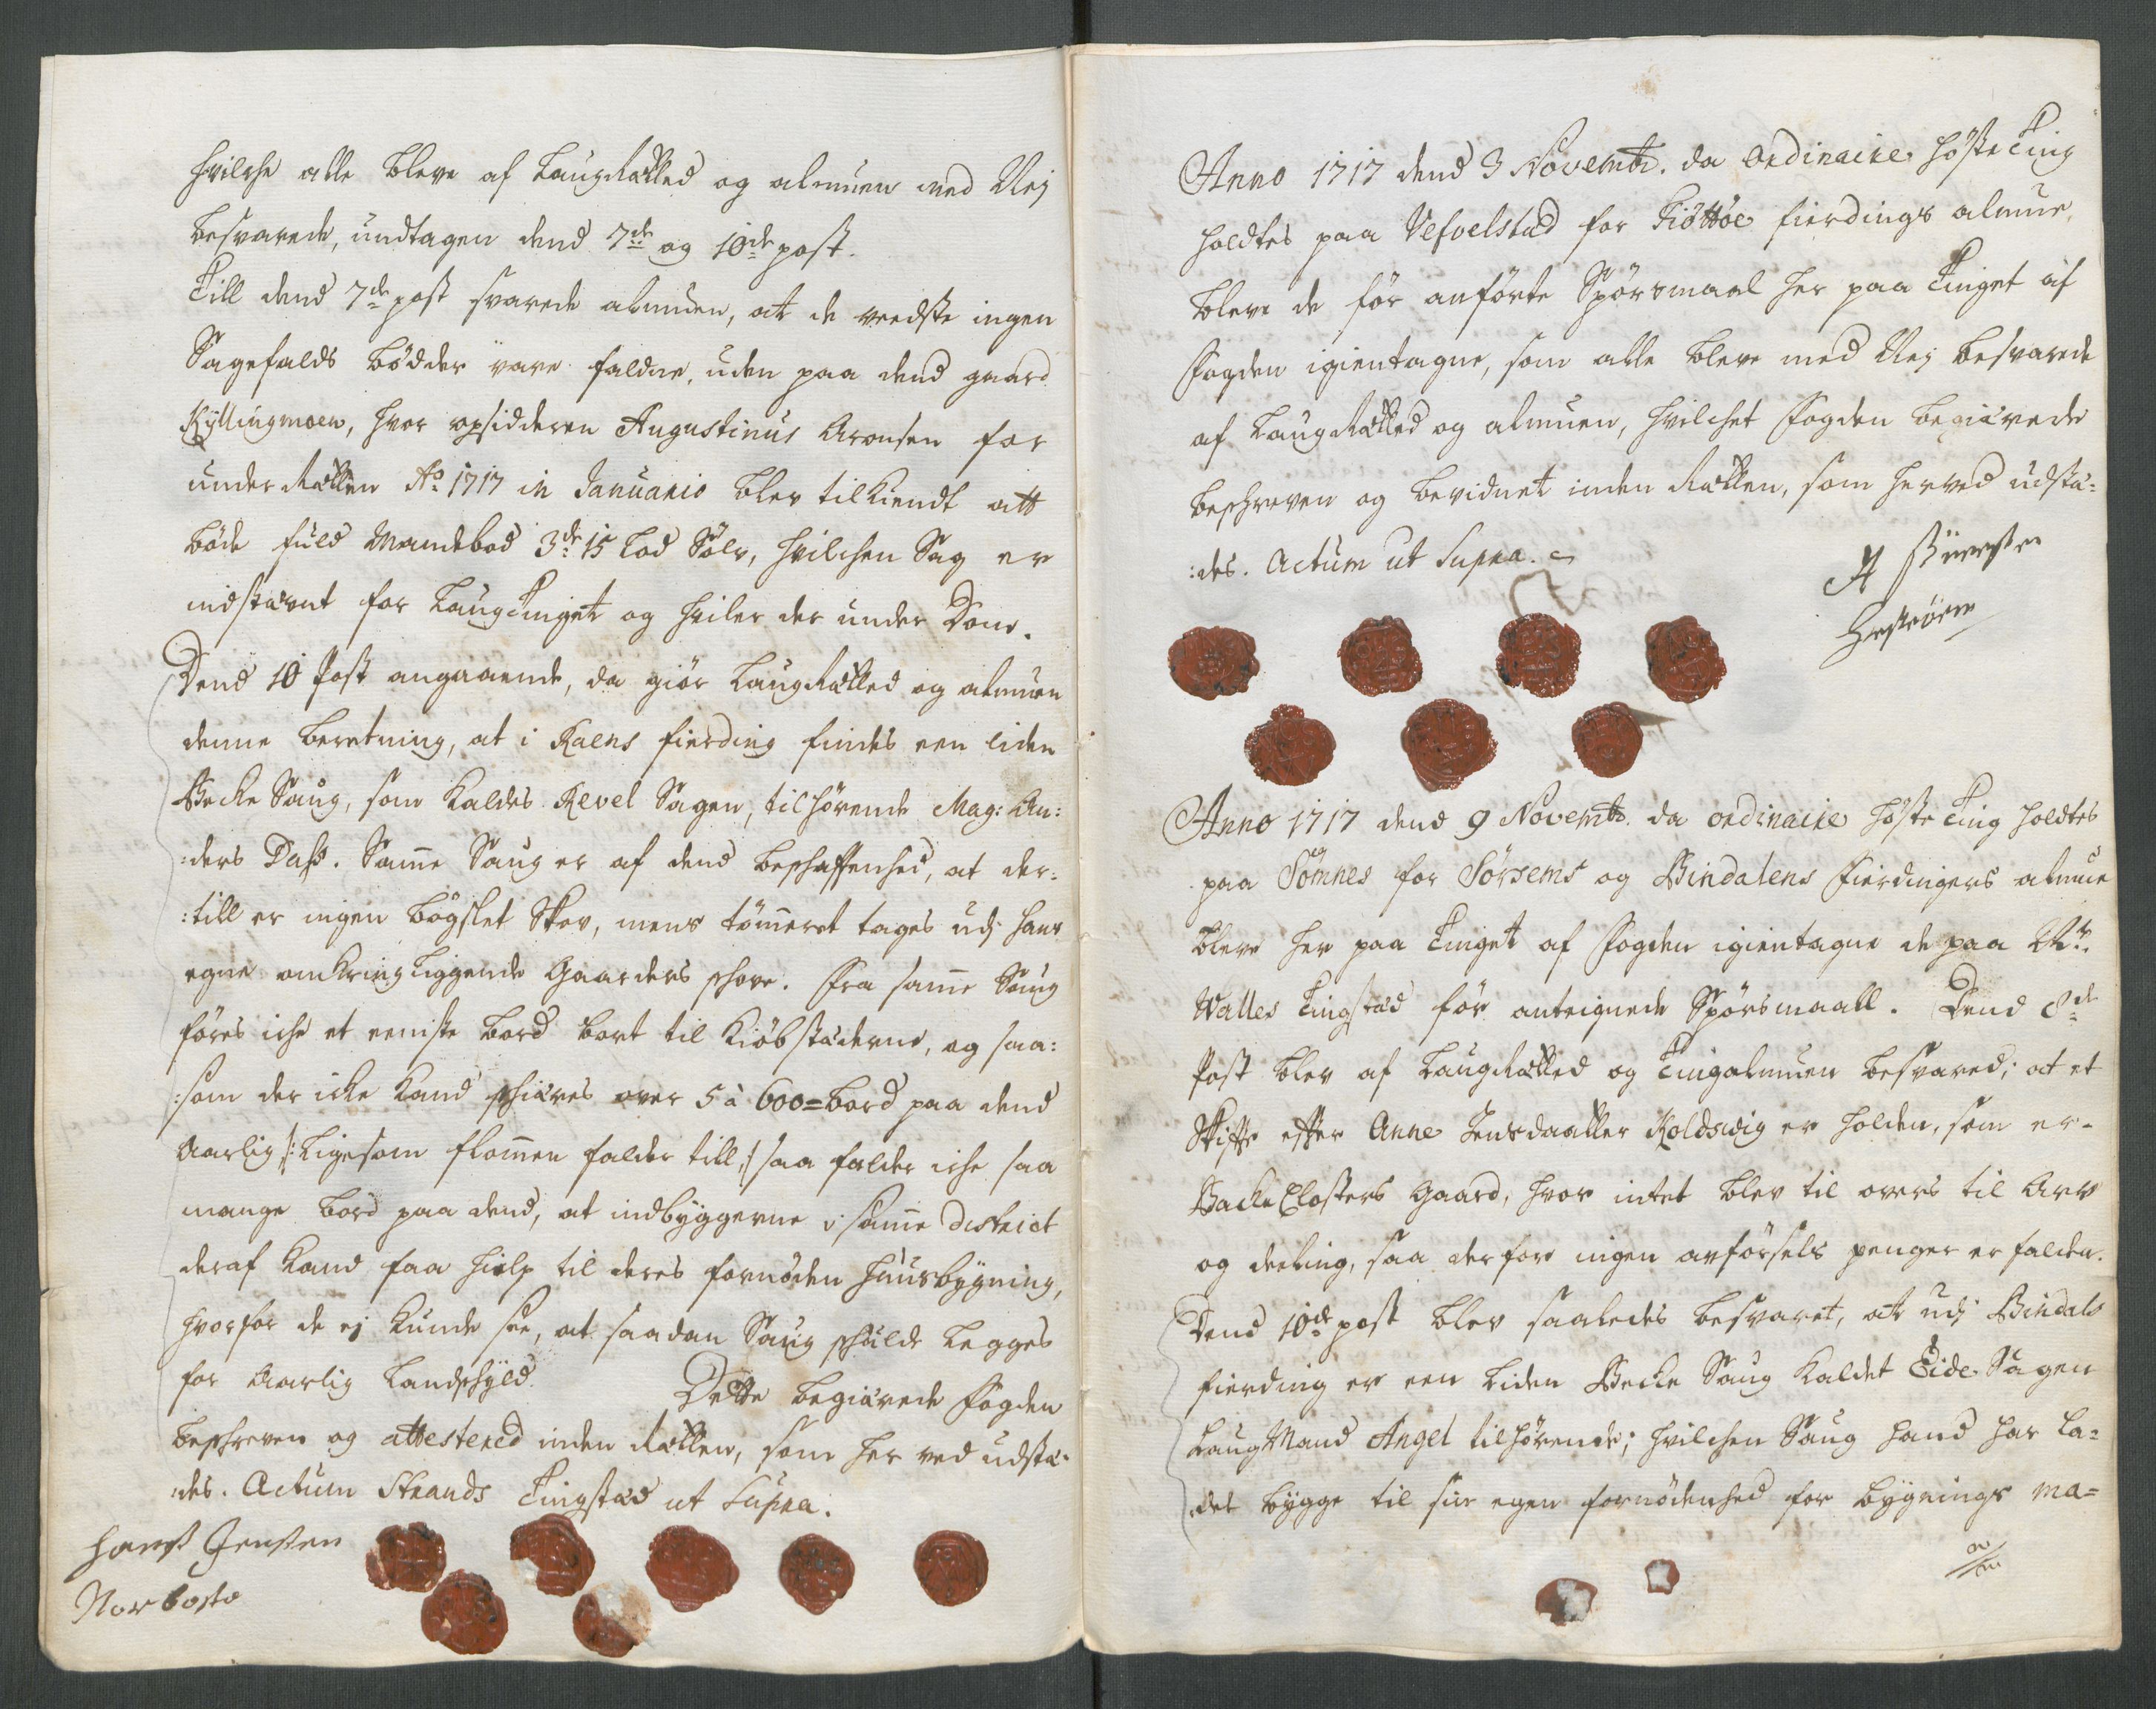 hvilche alle bleve af LaugRætted og almuen med Nej
besvarede, undtagen dend 7de og 10de post.
Till dend 7de post svarede almuen, at de veedste ingen
Sagefalds bødder vare faldne, uden paa dend gaard
Kyllingmoen, hvor opsidderen Augustinus Aronsen for
under Rætten Ao 1717 in Januario blev tilkiendt att
bøde fuld Mandebod 3de 15 Lod Sølv, hvilchen Sag er
indstævnt for LaugTinget og hviler der under Dom.
Dend 10 Post angaaende, da giør LaugRætted og almuen
denne beretning, at i Raens fierding findes een liden
Becke Saug, som kaldes Revel Sagen, tilhørende Mag: An:
:ders Dass. Samme Saug er af dend beschaffenhed, at der:
:till er ingen bøgslet Skov, mens tømmeret tages udj hans
egne omkringliggende Gaarders schove. Fra samme Saug
føres iche et eeniste bord bort til Kiøbstæderne, og saa:
:som der icke kand schiæres over 5 à 600=bord paa dend
Aarlig /: Ligesom flommen falder till, :/ saa falder iche saa
mange bord paa dend, at indbyggerne i samme district
deraf kand faa hielp til deres fornøden huusbygning,
hvorfor de ej kunde see, at saadan Saug schulde legges
for Aarlig Landschyld. Dette begiærede Fogden
beschreven og attestered inden Rætten, som her ved udstæ:
:des. Actum Strands Tingstæd ut Supra.
Hanss Jenssen
Norbosta
Anno 1717 dend 3 Novembr. da ordinaire høste Ting
holdtes paa Vefvelstad for Tiøttøe fierdings almue,
bleve de før anførte Spørsmaal her paa Tinget af
Fogden igientagne, som alle bleve med Nej besvarede
af LaugRætted og almuen, hvilchet Fogden begiærede
beschreven og bevidnet inden Rætten, som herved udstæ:
:des. Actum ut Supra.
Anno 1717 dend 9 Novembr. da ordinaire høste Ting holdtes
paa Sömnes for Sørsems og Bindalens Fierdingers almue
bleve her paa Tinget af Fogden igientagne de paa
Walles Tingstæd før antegnede Spørsmaall. Dend 8de
Post blev af LaugRætted og Tingalmuen besvared; at et
Skifte efter Anne Jensdaatter Koldswig er holden, som er-
Backe Closters Gaard, hvor intet blev til overs til Arv
og deeling, saa derfor ingen avførsels penger er falden.
Dend 10de post blev saaledes besvaret, at udj Bindals
fierding er een liden Becke Saug kaldet Eide Sagen
LaugMand Angel tilhørende; hvilchen Saug hand har la=
det bygge til sin egen fornødenhed for bygnings ma=